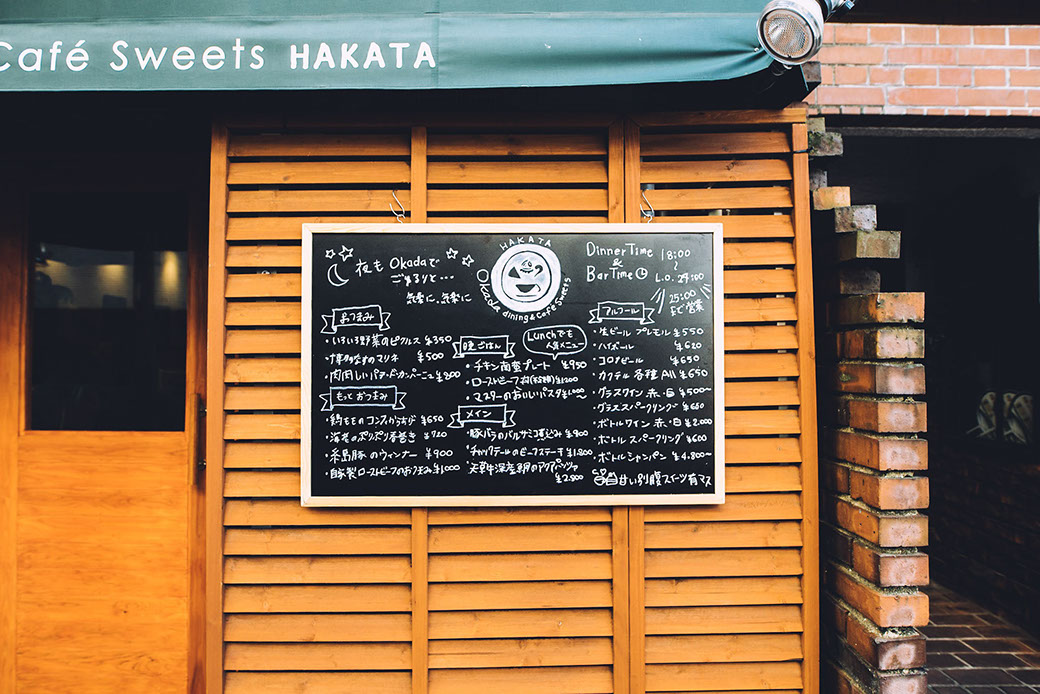 Café Sweets HAKATA
夜も Okadaで
ごゆるりと…
気楽に、気楽に
HAKATA
Okada dining & Café Sweets
DinnerTime
&
BarTime
18:00
〜
L.O. 24:00
25:00
まで営業
おつまみ
・いろいろ野菜のピクルス ¥350
・博多なすのマリネ ¥500
もっとおつまみ
・鶏ももの ¥650
・海老のぷりぷり春巻き ¥720
・糸島豚のウィンナー ¥900
・自家製ローストビーフのおつまみ ¥1000
晩ごはん
Lunchでも
人気メニュー
・チキン南蛮プレート ¥950
・ローストビーフ
・マスターのおいしいパスタ
メイン
・豚バラのバルサミコ煮込み ¥900
・チャックテールのビーフステーキ ¥1,800
・天草産 鯛のアクアパッツァ
¥2,800
アルコール
・生ビール プレモル ¥550
・ハイボール ¥620
・コロナビール ¥650
・カクテル 各種 All ¥650
・グラスワイン 赤・白 ¥500〜
・グラススパークリング ¥600
・ボトルワイン 赤・白 ¥2,000
・ボトル スパークリング
・ボトルシャンパン ¥4,800〜
甘い別腹スイーツ有マス